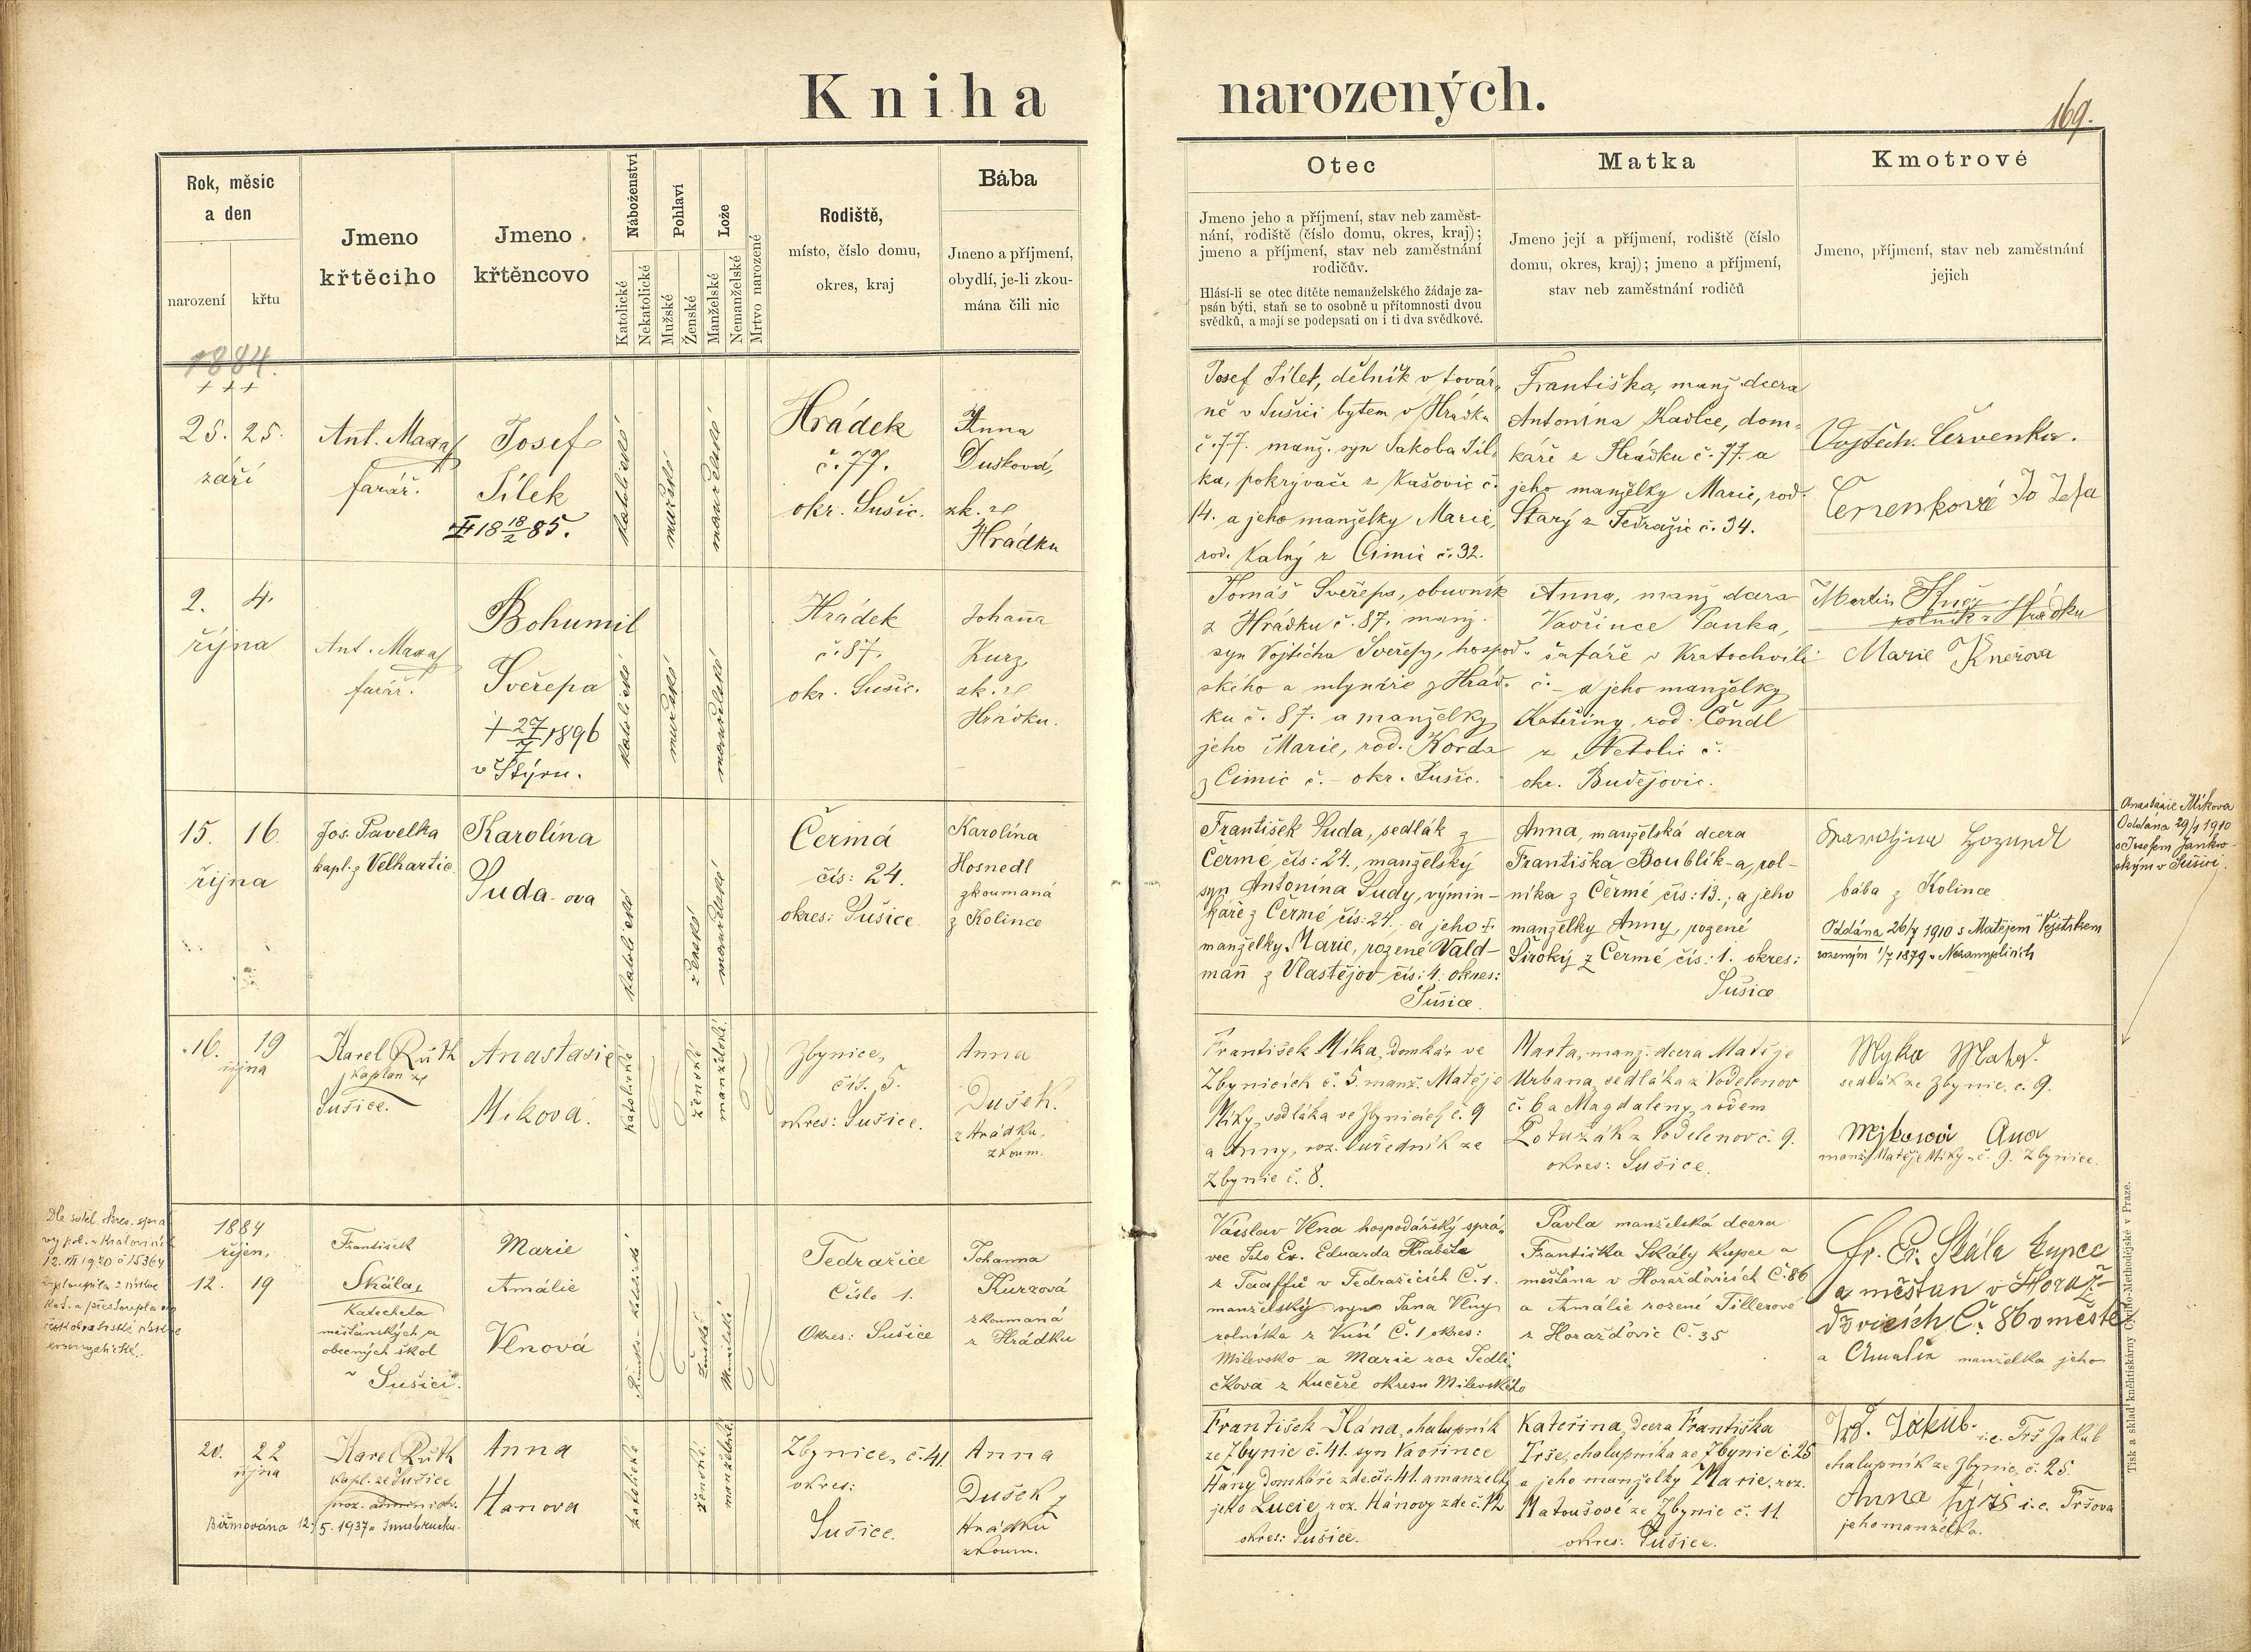 Kniha narozených.
169.
Rok, měsíc
a den
narození
křtu
Jmeno
křtěcího
Jmeno
křtěncovo
Náboženství
Katolické
Nekatolické
Pohlaví
Mužské
Ženské
Lože
Manželské
Nemanželské
Mrtvo narozené
Rodiště,
místo, číslo domu,
okres, kraj
Bába
Jmeno a příjmení,
obydlí, je-li zkou-
mána čili nic
Otec
Jmeno jeho a příjmení, stav neb zaměst-
nání, rodiště (číslo domu, okres, kraj);
jmeno a příjmení, stav neb zaměstnání
rodičův.
Hlásí-li se otec dítěte nemanželského žádaje za-
psán býti, staň se to osobně u přítomnosti dvou
svědků, a mají se podepsati on i ti dva svědkové.
Matka
Jmeno její a příjmení, rodiště (číslo
domu, okres, kraj); jmeno a příjmení,
stav neb zaměstnání rodičů
Kmotrové
Jmeno, příjmení, stav neb zaměstnání
jejich
1884.
+ + +
25. 25.
září
Ant. Maxa
farář.
Josef
Šilek
18 18/2 85.
katolické
mužské
manželské
Hrádek
č. 77.
okr. Sušic.
Anna
Dušková,
zk. z
Hrádku
Josef Šilek, dělník v továr-
ně v Sušici bytem v Hrádku
č. 77. manž. syn Jakoba Šil-
ka, pokrývače z Kašovic č.
14. a jeho manželky Marie,
rod. Kalný z Čimic č. 32.
Františka, manž. dcera
Antonína Kadlce, dom-
káře z Hrádku č. 77. a
jeho manželky Marie, rod.
Starý z Tedražic č. 34.
Vojtěch Červenka.
2. 4.
října
Ant. Maxa
farář.
Bohumil
Svěřepa
+ 27/7 1896
v Štýru.
katolické
mužské
manželské
Hrádek
č. 87.
okr. Sušic.
Johanna
Kurz,
zk. z
Hrádku.
Tomáš Svěřepa, obuvník
z Hrádku č. 87, manž.
syn Vojtěcha Svěřepy, hospod-
ského a mlynáře z Hrád-
ku č. 87. a manželky
jeho Marie, rod. Korda
z Čimic č. – okr. Sušic.
Anna, manž. dcera
Vavřince Panka,
šafáře v Kratochvíli
č. – a jeho manželky
Kateřiny, rod. Čondl
z Netolic č. –
okr. Budějovic.
Martin
rolník z Hrádku
Marie
15. 16.
října
Jos. Pavelka
kapl. z Velhartic
Karolína
Suda-ova
katolické
ženské
manželské
Čermá
čís: 24.
okres: Sušice.
Karolína
Hosnedl
zkoumaná
z Kolince
František Suda, sedlák z
Čermé, čís: 24., manželský
syn Antonína Sudy, výmin-
káře z Čermé čís: 24., a jeho †
manželky Marie, rozené Vald-
mann z Vlastějov čís: 4. okres:
Sušice.
Anna, manželská dcera
Františka Boublík-a, rol-
níka z Čermé čís: 13.; a jeho
manželky Anny, rozené
Široký z Čermé čís: 1. okres:
Sušice
bába z Kolince
Oddána 26/7 1910 s Matějem
rozeným 1/7 1879 v
Anastázie Míkova
Oddána 29/1 1910
s Josefem Jankov-
ským v Sušici.
16. 19
října
Karel Růth
kaplan ze
Sušice.
Anastasie
Miková.
katolické
ženské
manželské.
Zbynice,
čís. 5.
okres: Sušice.
Anna
Dušek.
z Hrádku,
zkoum.
František Míka, domkář ve
Zbynicích č. 5. manž. Matěje
Míky, sedláka ve Zbynicích č. 9
a Anny, roz. Ouředník ze
Zbynic č. 8.
Marta, manž. dcera Matěje
Urbana, sedláka z Vodelenov
č. 6 a Magdaleny, rodem
Potužák z Vodelenov č. 9.
okres: Sušice.
Myka Matej
sedlák ze Zbynic, č. 9.
Mikova Ana
manž. Matěje Míky č. 9. Zbynice.
1884
říjen,
12. 19
František
Skála,
Katecheta
měšťanských a
obecných škol
v Sušici.
Marie
Amálie
Vlnová
ženské
Manželské
Tedražice
Číslo 1.
Okres: Sušice
Johanna
Kurzová
zkoumaná
z Hrádku
Václav Vlna hospodářský sprá-
vec Jeho Ex. Eduarda Hraběte
z Taaffů v Tedražicích Č. 1.
manželský syn Jana Vlny
rolníka z Kusí Č. 1 okres:
Milevsko a Marie roz. Sedli-
čkova z Kučeře okresu Milevského
Pavla manželská dcera
Františka Skály kupce a
měšťana v Horažďovicích Č. 86
a Amálie rozené Tillerové
z Horažďovic Č. 35
Fr. Skála kupec
a měšťan v Horaž-
ďovicích Č. 86 v městě
a Amalia manželka jeho
20. 22
října
Karel Růth
kapl. ze Sušice
proz. administr.
Biřmována 12./5. 1937 v Innsbrucku.
Anna
Hanova
katolické
ženské.
manželské.
Zbynice, č. 41.
okres:
Sušice.
Anna
Dušek z
Hrádku
zkoum.
František Hána, chalupník
ze Zbynic č. 41. syn Vavřince
Hány domkáře zde čís. 41. a manželky
jeho Lucie, roz. Hánovy zde č. 12
okres: Sušice.
Kateřina, dcera Františka
Trše, chalupníka ze Zbynic č. 25
a jeho manželky Marie, roz.
Matoušové ze Zbynic č. 11.
okres: Sušice.
Jakub. i.e. Trš Jakub
chalupník ze Zbynic, č. 25.
Anna i.e. Tršova
jeho manželka.
Tisk a sklad kněhtiskárny Cyrillo-Methodějské v Praze.